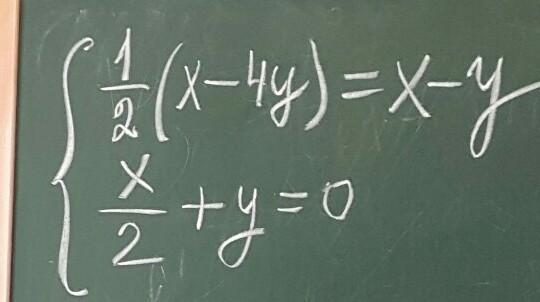 1/2(x-4y)=x-y
x/2+y=0